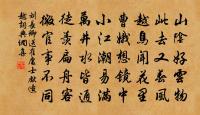 山陰好雲物
此去又春風
越鳥聞花里
曹娥想鏡中
小江潮易滿
萬井水皆通
徒羨扁舟客
微官事不同
劉長卿送崔處士先適
越詞典網集